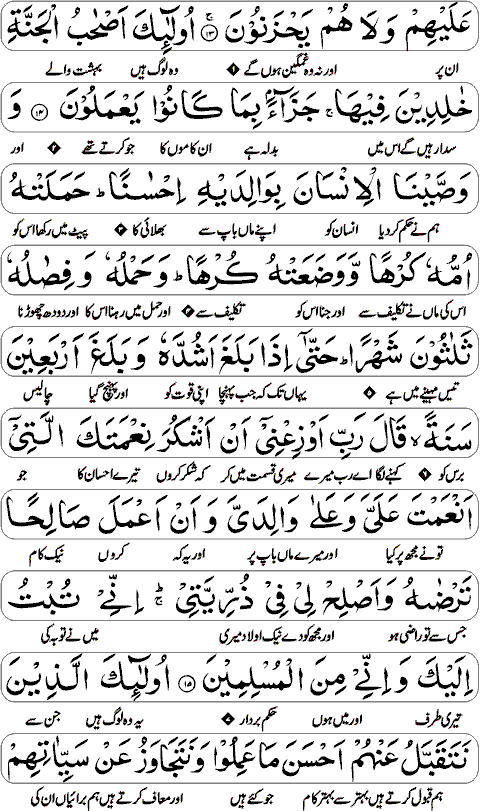 عَلَيْهِمْ وَلَا هُمْ يَحْزَنُوْنَ ۚ﴿۱۳﴾ اُولٰٓئِكَ اَصْحٰبُ الْجَنَّةِ
ان پر اور نہ وہ غمگین ہوں گے وہ لوگ ہیں بہشت والے
خٰلِدِيْنَ فِيْهَا ۚ جَزَآءًۢ بِمَا كَانُوْا يَعْمَلُوْنَ ﴿۱۴﴾ وَ
سدا رہیں گے اس میں بدلہ ہے ان کاموں کا جو کرتے تھے اور
وَصَّيْنَا الْاِنْسَانَ بِوَالِدَيْهِ اِحْسٰنًا ؕ حَمَلَتْهُ
ہم نے حکم کر دیا انسان کو اپنے ماں باپ سے بھلائی کا پیٹ میں رکھا اس کو
اُمُّهٗ كُرْهًا وَّوَضَعَتْهُ كُرْهًا ؕ وَحَمْلُهٗ وَفِصٰلُهٗ
اس کی ماں نے تکلیف سے اور جنا اس کو تکلیف سے اور حمل میں رہنا اس کا اور دودھ چھوڑنا
ثَلٰثُوْنَ شَهْرًا ؕ حَتّٰۤى اِذَا بَلَغَ اَشُدَّهٗ وَبَلَغَ اَرْبَعِيْنَ
تیس مہینے میں ہے یہاں تک کہ جب پہنچا اپنی قوت کو اور پہنچ گیا چالیس
سَنَةً ۙ قَالَ رَبِّ اَوْزِعْنِيْۤ اَنْ اَشْكُرَ نِعْمَتَكَ الَّتِيْۤ
برس کو کہنے لگا اے رب میرے میری قسمت میں کر کہ شکر کروں تیرے احسان کا جو
اَنْعَمْتَ عَلَيَّ وَعَلٰى وَالِدَيَّ وَاَنْ اَعْمَلَ صَالِحًا
تو نے مجھ پر کیا اور میرے ماں باپ پر اور یہ کہ کروں نیک کام
تَرْضٰىهُ وَاَصْلِحْ لِيْ فِيْ ذُرِّيَّتِيْ ۚ اِنِّيْ تُبْتُ
جس سے تو راضی ہو اور مجھ کو دے نیک اولاد میری میں نے توبہ کی
اِلَيْكَ وَاِنِّيْ مِنَ الْمُسْلِمِيْنَ ﴿۱۵﴾ اُولٰٓئِكَ الَّذِيْنَ
تیری طرف اور میں ہوں حکم بردار یہ وہ لوگ ہیں جن سے
نَتَقَبَّلُ عَنْهُمْ اَحْسَنَ مَا عَمِلُوْا وَنَتَجَاوَزُ عَنْ سَيِّاٰتِهِمْ
ہم قبول کرتے ہیں بہتر سے بہتر کام جو کئے ہیں اور معاف کرتے ہیں ہم برائیاں ان کی